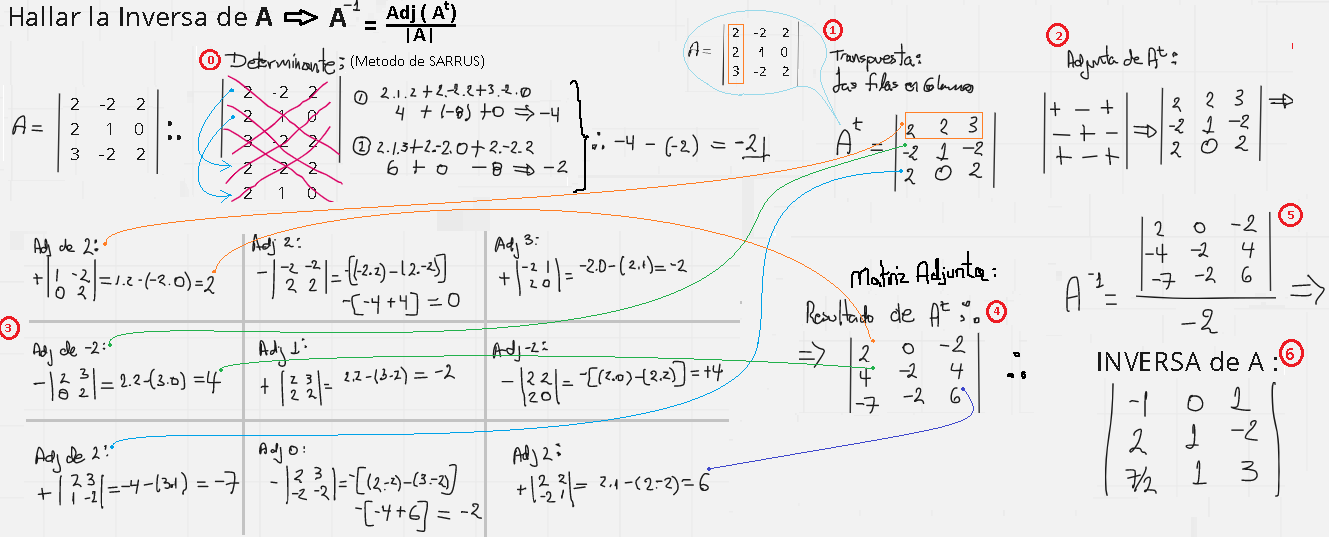 Hallar la Inversa de A ⇨ A⁻¹ = Adj ( Aᵗ) / |A|
0 Determinante: (Metodo de SARRUS)
A = | 2 -2 2 |
| 2 1 0 |
| 3 -2 2 |
:.
2 -2 2
2 1 0
3 -2 2
2 -2 2
2 1 0
① 2.1.2+2.-2.2+3.-2.0
4 + (-8) +0 ⇒ -4
② 2.1.3+2.-2.0+2.-2.2
6 + 0 -8 ⇒ -2
∴ -4 - (-2) = -2
A= | 2 -2 2 |
| 2 1 0 |
| 3 -2 2 |
1
Transpuesta:
las filas en Columnas
Aᵗ = | 2 2 3 |
| -2 1 -2 |
| 2 0 2 |
2
Adjunta de Aᵗ:
| + - + |
| - + - |
| + - + |
⇒
| 2 2 3 |
| -2 1 -2 |
| 2 0 2 |
⇒
3
Adj de 2:
+ | 1 -2 | = 1.2-(-2.0)=2
| 0 2 |
Adj 2:
- | -2 -2 | = -[(-2.2)-(2.-2)]
| 2 2 |
-[-4+4] = 0
Adj 3:
+ | -2 1 | = -2.0-(2.1)=-2
| 2 0 |
Adj de -2:
- | 2 3 | = 2.2-(3.0)=4
| 0 2 |
Adj 1:
+ | 2 3 | = 2.2-(3-2) = -2
| 2 2 |
Adj-2:
- | 2 2 | = -[(2.0)-(2.2)] = +4
| 2 0 |
Adj de 2:
+ | 2 3 | = -4-(3.1) = -7
| 1 -2 |
Adj 0:
- | 2 3 | = -[(2.-2)-(3.-2)]
| -2 -2 |
-[-4+6] = -2
Adj 2:
+ | 2 2 | = 2.1-(2-2)=6
| -2 1 |
Matriz Adjunta:
Resultado de Aᵗ :. 4
⇒ | 2 0 -2 |
| 4 -2 4 |
| -7 -2 6 |
:.
5
A⁻¹ = | 2 0 -2 |
| -4 -2 4 |
| -7 -2 6 |
-2
⇒
INVERSA de A : 6
| -1 0 2 |
| 2 1 -2 |
| 7/2 1 3 |